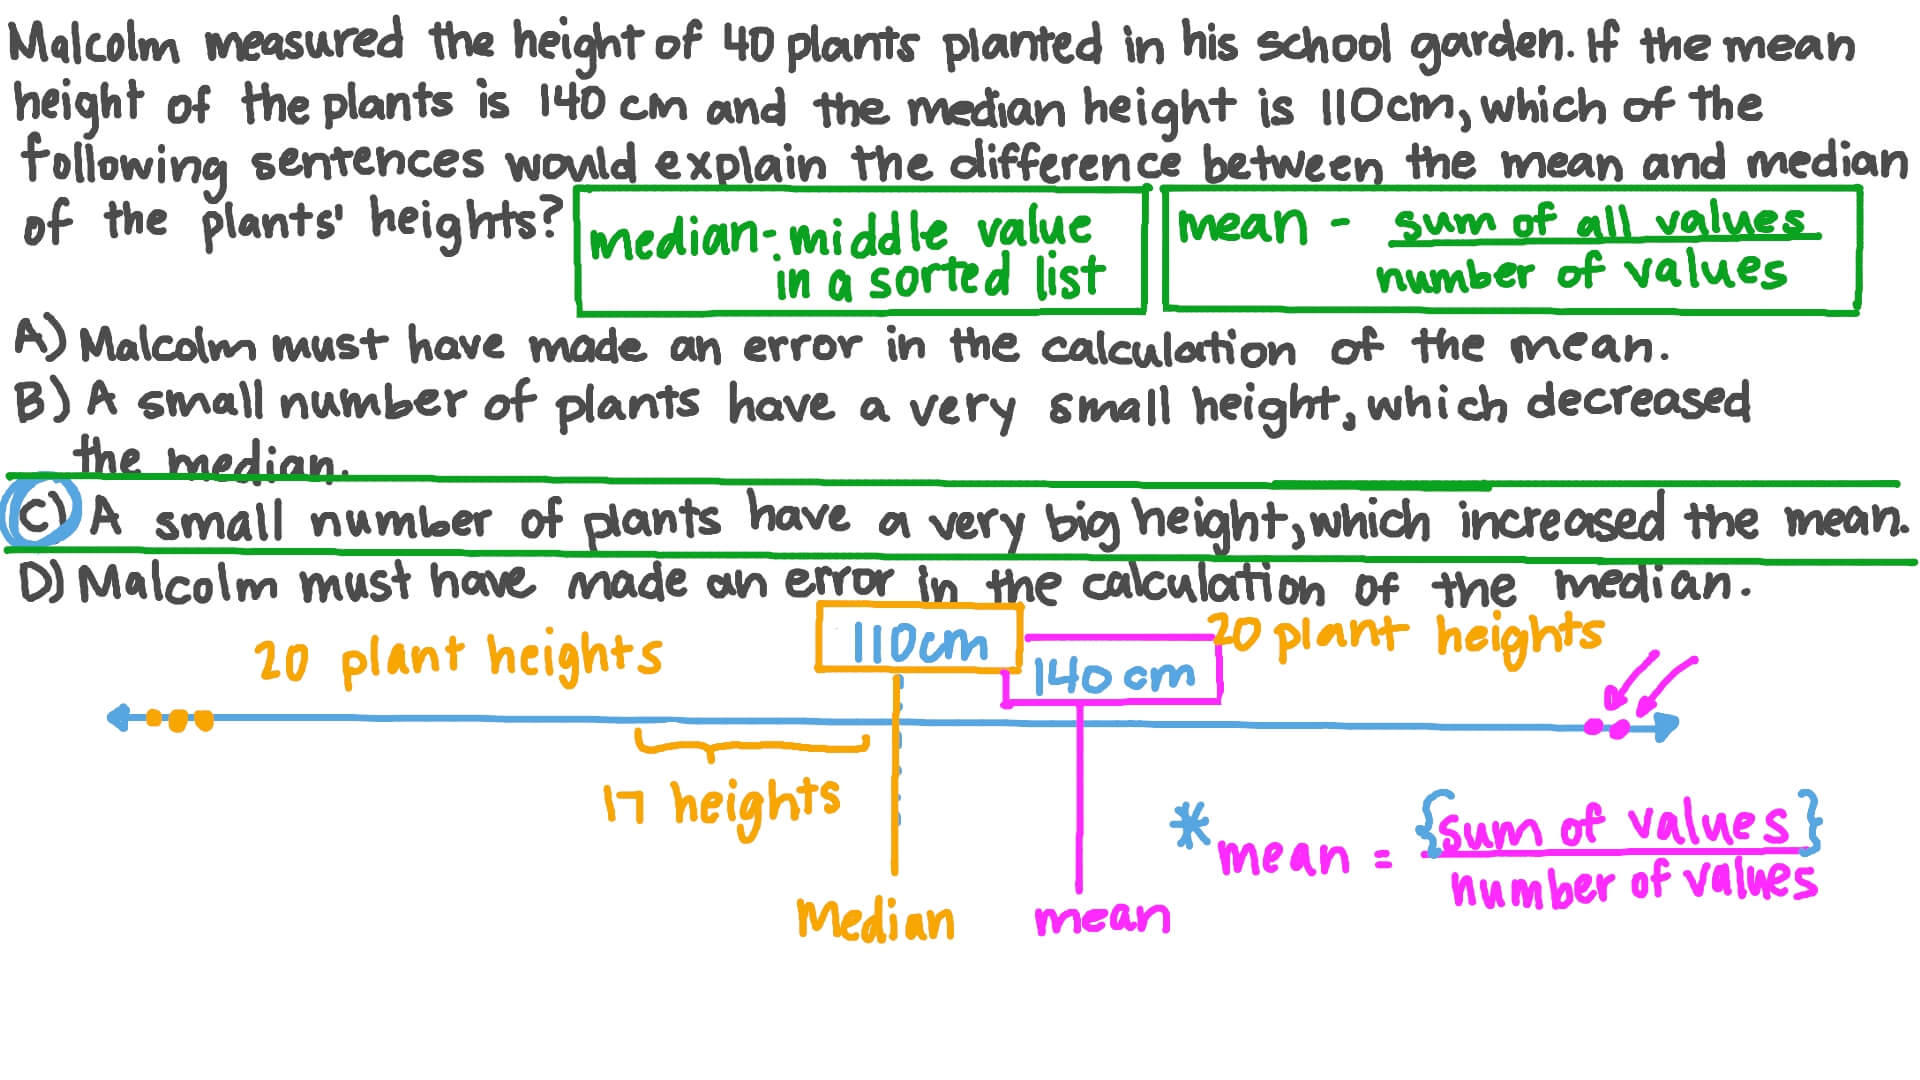 Malcolm measured the height of 40 plants planted in his school garden. If the mean
height of the plants is 140 cm and the median height is 110cm, which of the
following sentences would explain the difference between the mean and median
of the plants' heights?
median- middle value
in a sorted list
mean - sum of all values
number of values
A) Malcolm must have made an error in the calculation of the mean.
B) A small number of plants have a very small height, which decreased
the median.
C) A small number of plants have a very big height, which increased the mean.
D) Malcolm must have made an error in the calculation of the median.
20 plant heights
110cm
140 cm
20 plant heights
17 heights
Median
mean
* mean = {sum of values}
number of values